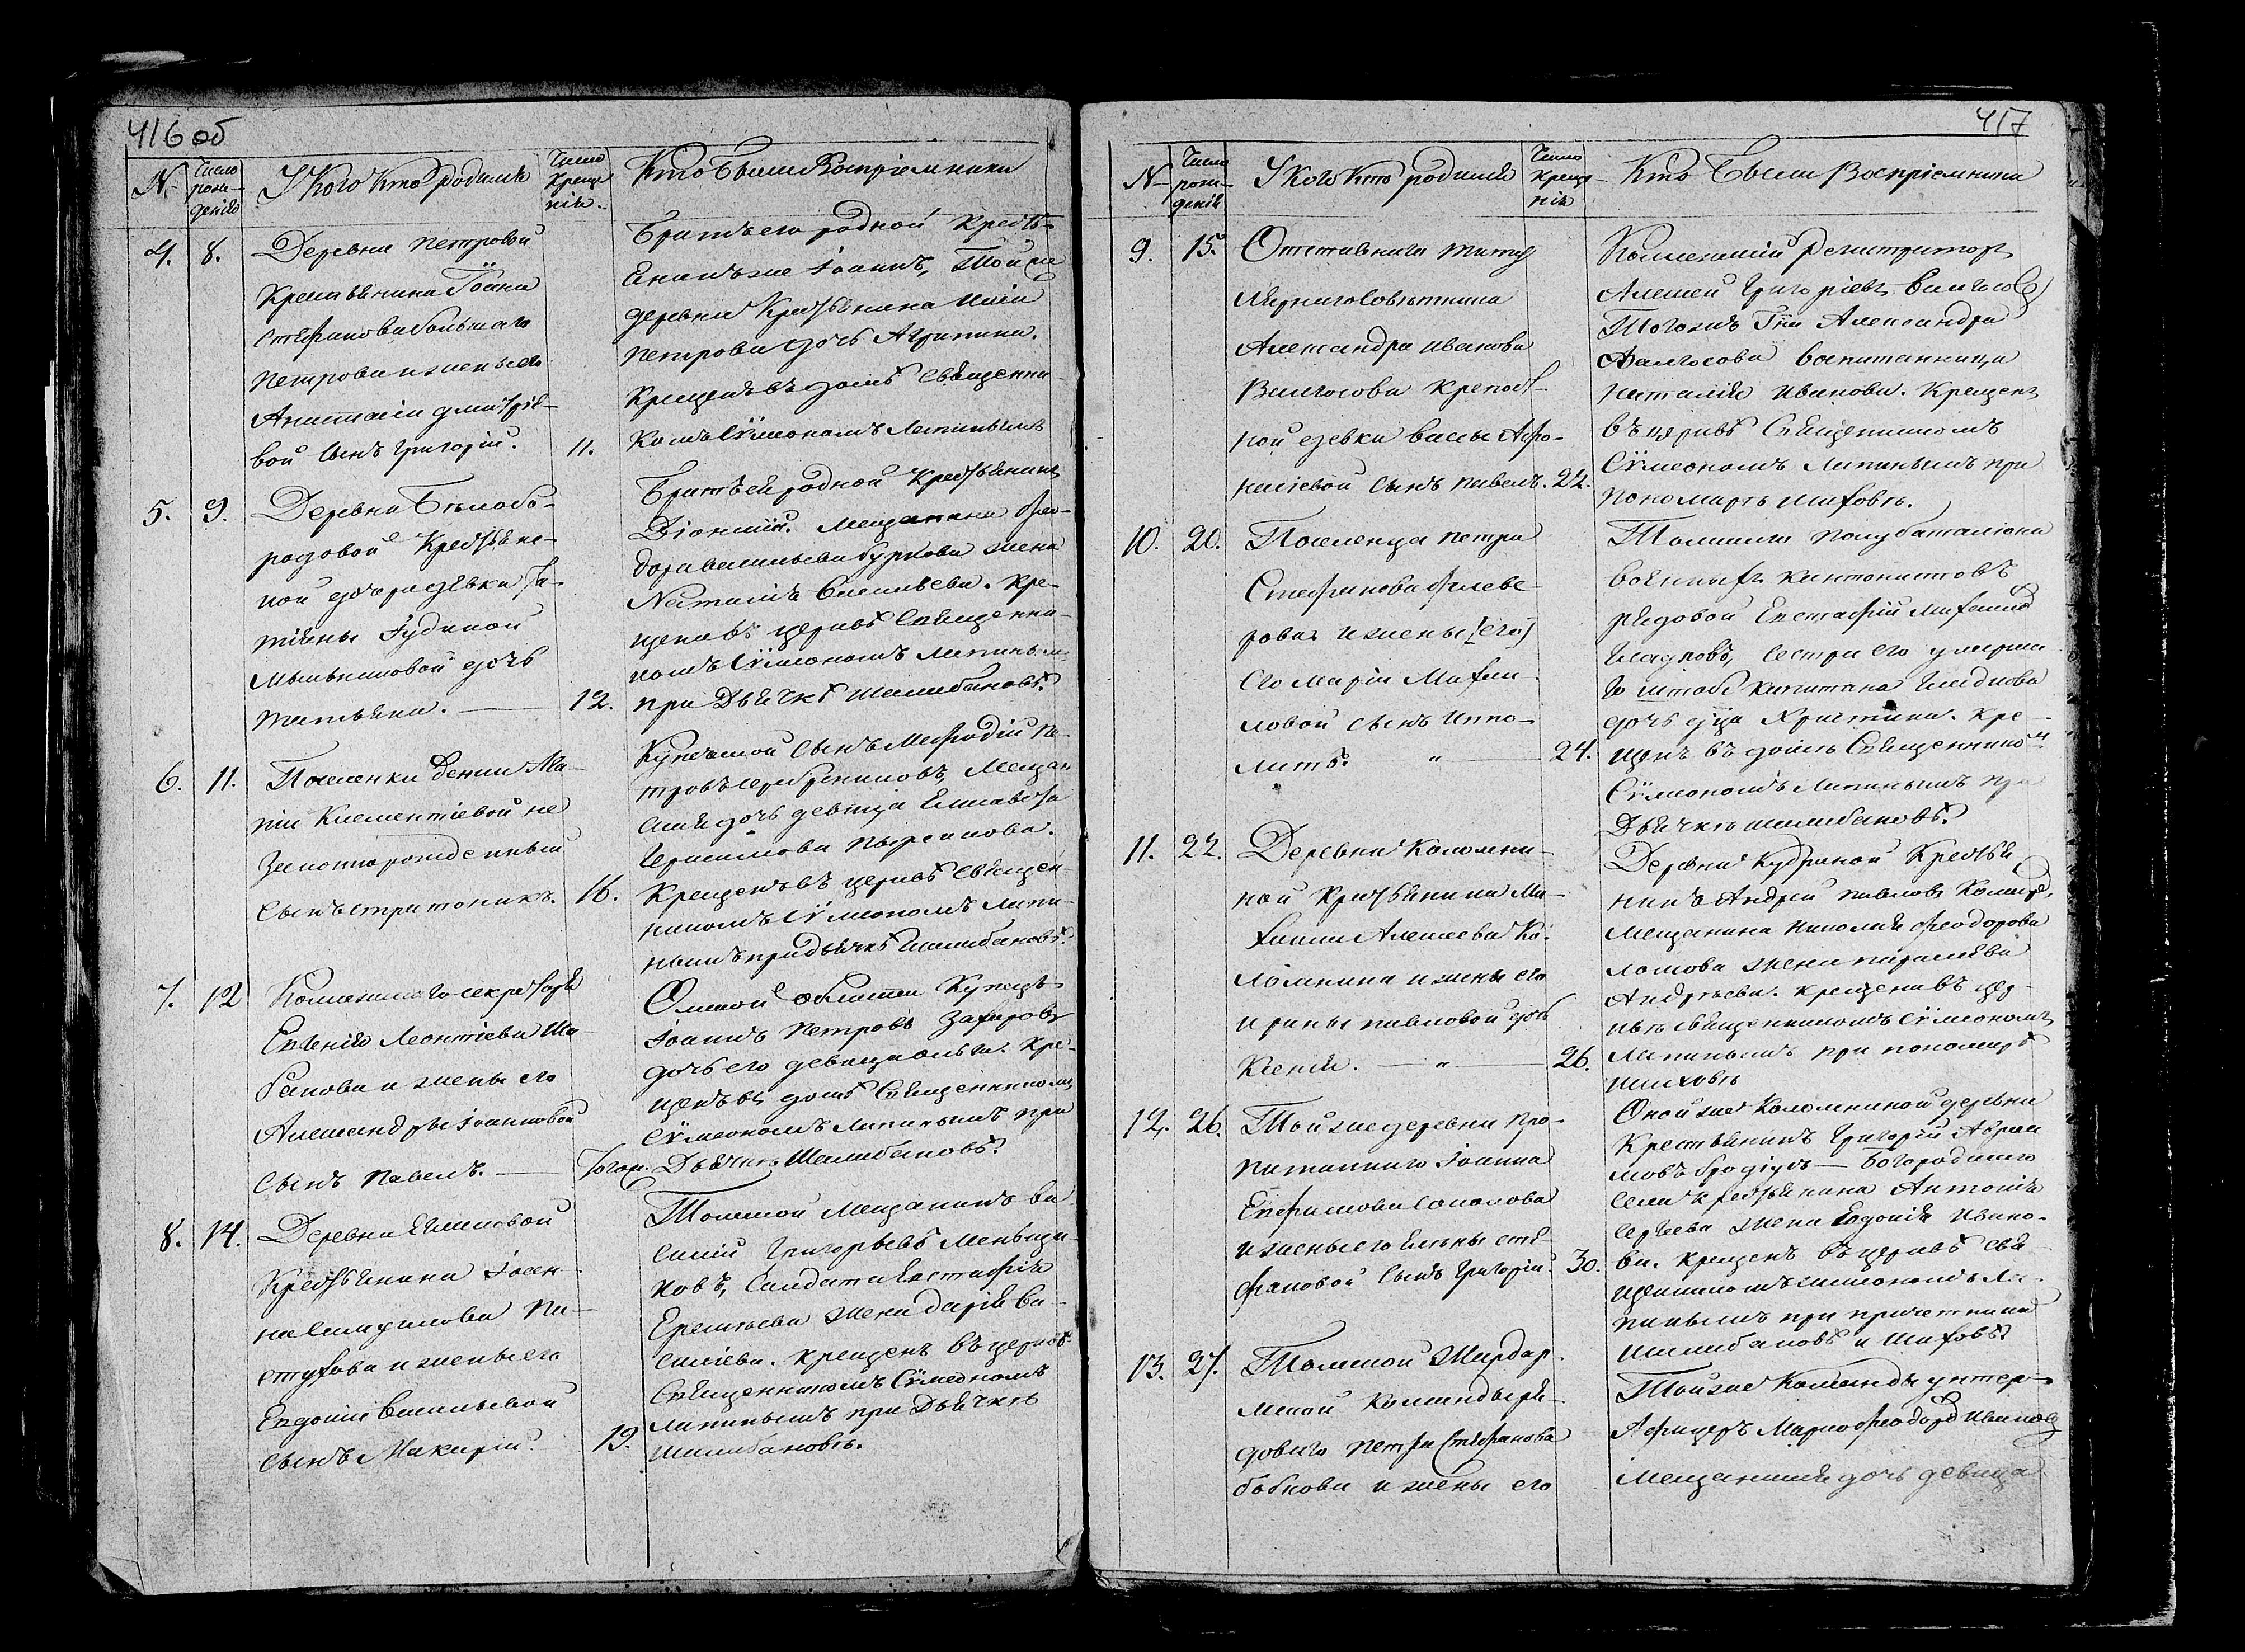 416 об
N
Число рождения
У Кого Кто родился
Число Крещения
Кто Были Восприемники
4.
8.
Деревни Петровой
Крестьянина Іоана
Стефанова большаго
Петрова и жены его
Анастасіи Дмитріе-
вой сынъ Григорій.
11.
Братъ его родной Кресть-
янинъ же Іоаннъ, Той же
деревни Крестьянина Иліи
Петрова дочь Агрипина.
Крещенъ въ доме Священни-
комъ Сѵмеономъ Лапинымъ
5.
9.
Деревни Белобо-
родовой Крестьянс-
кой дочери девки Та-
тіяны Іудиной
Мыльниковой дочь
Татьяна.
12.
Братъ ей родной Крестьянинъ
Діонисій. Мещанина Фео-
дора Васильева Буркова жена
Наталія Васильева. Кре-
щена въ церкве Священни-
комъ Сѵмеономъ Лапинымъ
при Дьячке Шалабанове.
6.
11.
Поселенки девки Ма-
ріи Климентіевой не
законнорожденный
сынъ стратоникъ.
16.
Купеческой сынъ Мефодій Пе-
тровъ Серебрениковъ, Мещан-
ская дочь девица Елисавета
Герасимова Пырсикова.
Крещенъ въ церкве Священ-
никомъ Сѵмеономъ Лапи-
нымъ при дьячке Шалабанове.
7.
12
Коллежскаго секретаря
Евгенія Леонтіева Ша-
банова и жены его
Александры Іоанновой
сынъ Павелъ.
Тогож.
Омской области Купецъ
Іоаннъ Петровъ Захаровъ
дочь его девица Ольга. Кре-
щенъ въ доме Священникомъ
Сѵмеономъ Лапинымъ при
Дьячкѣ Шалабанове.
8.
14.
Деревни Еглиновой
Крестьянина Іоан-
на Евдокимова Па-
стухова и жены его
Евдокіи Васильевой
сынъ Макарій.
19.
Томской Мещанинъ Ва-
силій Григорьевъ Меньщи-
ковъ, Салдата Евстафія
Еремѣева жена Дарія Ва-
силіева. Крещенъ въ церкве
Священникомъ Сѵмеономъ
Лапинымъ при Дьячкѣ
Шалабановѣ.
417
N
Число рождения
У Кого Кто родился
Число Крещения
Кто Были Восприемники
9.
15.
Отставнаго титу-
лярнаго Советника
Александра Иванова
Валгосова крепост-
ной девки Вассы Афо-
насіевой сынъ Павелъ.
22.
Коллежскій Регистраторъ
Алексей Григоріевъ Валгосовъ
Тогожъ Гна Александра
Валгосова воспитанница
Наталія Иванова. Крещенъ
въ церкве Священникомъ
Сѵмеономъ Лапинымъ при
пономарѣ Шаховѣ.
10.
20.
Поселенца Петра
Стефанова Флеве-
рова и жены [его]
его Маріи Михаи-
ловой сынъ Иппо-
литъ.
24.
Томскаго полубаталіона
военныхъ кантонистовъ
рядовой Евстафій Михаилов
Гладковъ, Сестра его умерша-
го штабс капитана Гладкова
дочь д'ца Христина. Кре-
щенъ въ доме Священникомъ
Сѵмеономъ Лапинымъ при
Дьячке Шалабанове.
11.
22.
Деревни Коломни-
ной Крестьянина Ми-
хаила Алексеева Ко-
ломнина и жены его
Ирины Павловой дочь
Ксенія.
26.
Деревни Кудриной Крестья-
нинъ Андрей Павловъ
Мещанина Николая Феодорова
Ломова жена Параскева
Андреева. Крещена въ цер-
квѣ Священникомъ Сѵмеономъ
Лапинымъ при пономаре
Шаховѣ
12.
26.
Той же деревни Про-
питаннаго Іоанна
Евфимова Соколова
и жены его Елены Сте-
фановой сынъ Григорій.
30.
Оной же Коломниной деревни
Крестьянинъ Григорій Абрам-
мовъ Бродіусъ — Богородскаго
села крестьянина Антонія
Сергеева жена Евдокія Ивано-
ва. Крещенъ въ церкве Свя-
щенникомъ Симеономъ Ла-
пинымъ при причетниках
Шалабанове и Шахове.
13.
27.
Томской Жандар-
мской Команды ря-
доваго Петра Стефанова
Бобкова и жены его
Той же Команды унтер-
Афицеръ Марко Феодоро Ивановъ
Мещанская дочь девица